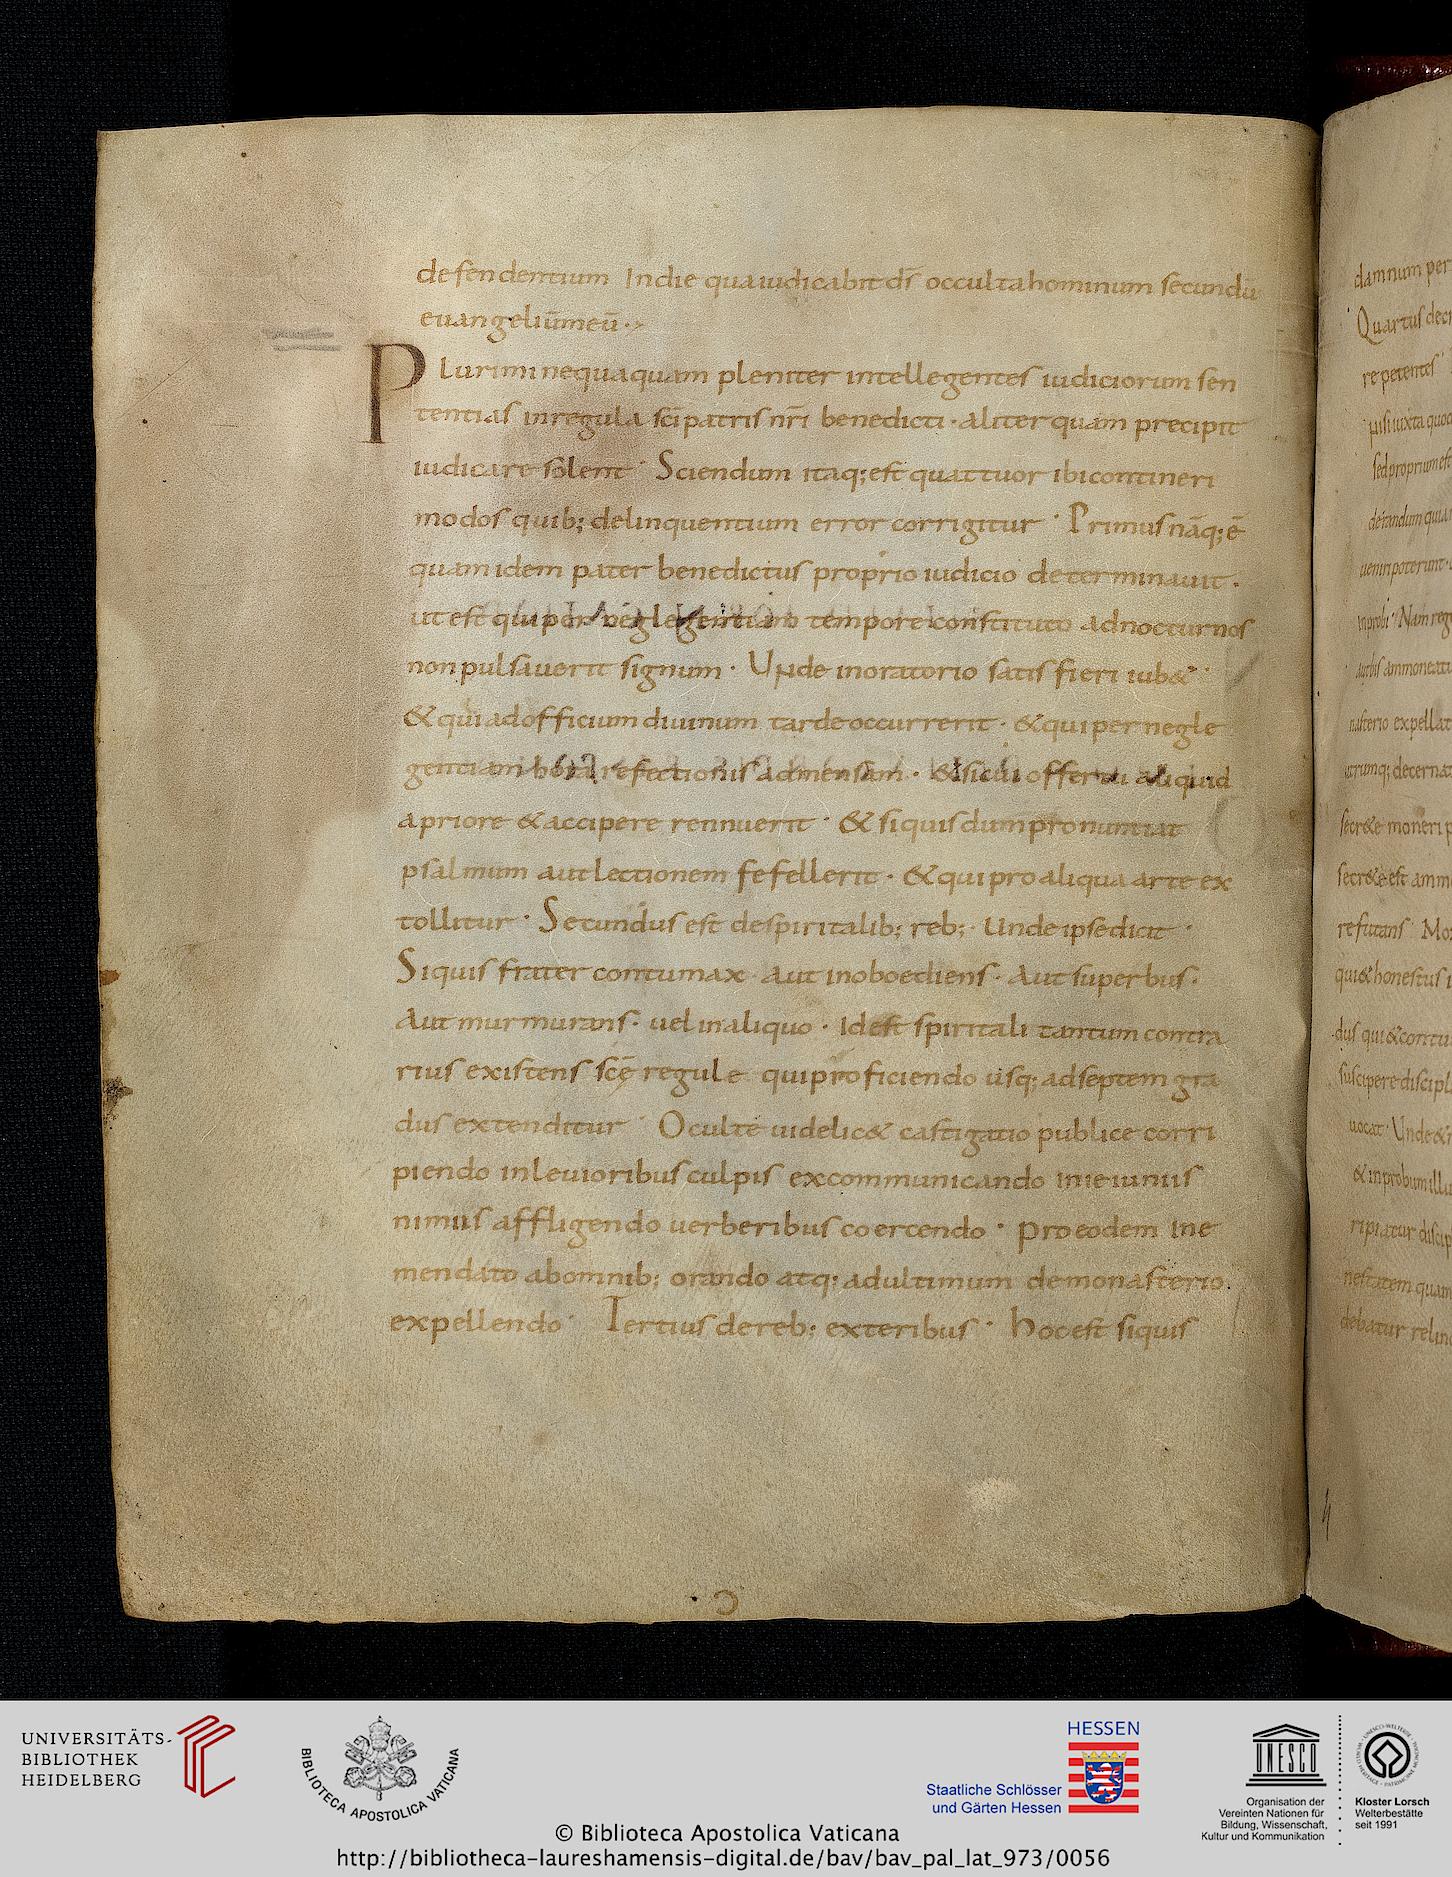 defendentium In die qua iudicabit ds̄ occulta hominum secundū
euangeliū meū
Plurimi nequaquam pleniter intellegentes iudiciorum sen
tentias in regula scī patris nrī benedicti · aliter quam precipit
iudicare solent · Sciendum itaq; est quattuor ibi contineri
modos quib; delinquentium error corrigitur · Primus nāq; ē
quam idem pater benedictus proprio iudicio determinauit ·
ut est qui per neglegentiam tempore constituto ad nocturnos
non pulsauerit signum · Unde in oratorio satis fieri iub& ·
& qui ad officium diuinum tarde occurrerit · & qui per negle
gentiam hora refectionis ad mensam · & si cui offertur aliquid
a priore & accipere rennuerit · & si quis dum pronuntiat
psalmum aut lectionem fefellerit · & qui pro aliqua arte ex
tollitur · Secundus est de spiritalib; reb; · Unde ipse dicit ·
Siquis frater contumax · aut inoboediens · aut superbus ·
Aut murmurans · uel in aliquo · id est spiritali tantum contra
rius existens scē regule qui proficiendo usq; ad septem gra
dus extenditur · Oculte uidelic& castigatio publice corri
piendo in leuioribus culpis excommunicando in ieiuniis
nimiis affligendo uerberibus coercendo · pro eodem ine
mendato ab omnib; orando atq; ad ultimum de monasterio
expellendo · Tertius de reb; exteribus · hoc est siquis
damnum per
Quartus dec
repetentes
sed proprium est
ueniri poterunt
Nam reg
nasterio expellat
utrumq; decernat
secr&e moneri p
secr&e est amm
refutans · Mo
qui & honestus
dus qui & contu
suscipere discipl
uocat · Unde &
& inprobum illu
ripiatur discip
nestatem quam
debatur relin
UNIVERSITÄTS-
BIBLIOTHEK
HEIDELBERG
BIBLIOTECA APOSTOLICA VATICANA
HESSEN
Staatliche Schlösser
und Gärten Hessen
UNESCO
Organisation der
Vereinten Nationen für
Bildung, Wissenschaft,
Kultur und Kommunikation
Kloster Lorsch
Welterbestätte
seit 1991
© Biblioteca Apostolica Vaticana
http://bibliotheca-laureshamensis-digital.de/bav/bav_pal_lat_973/0056